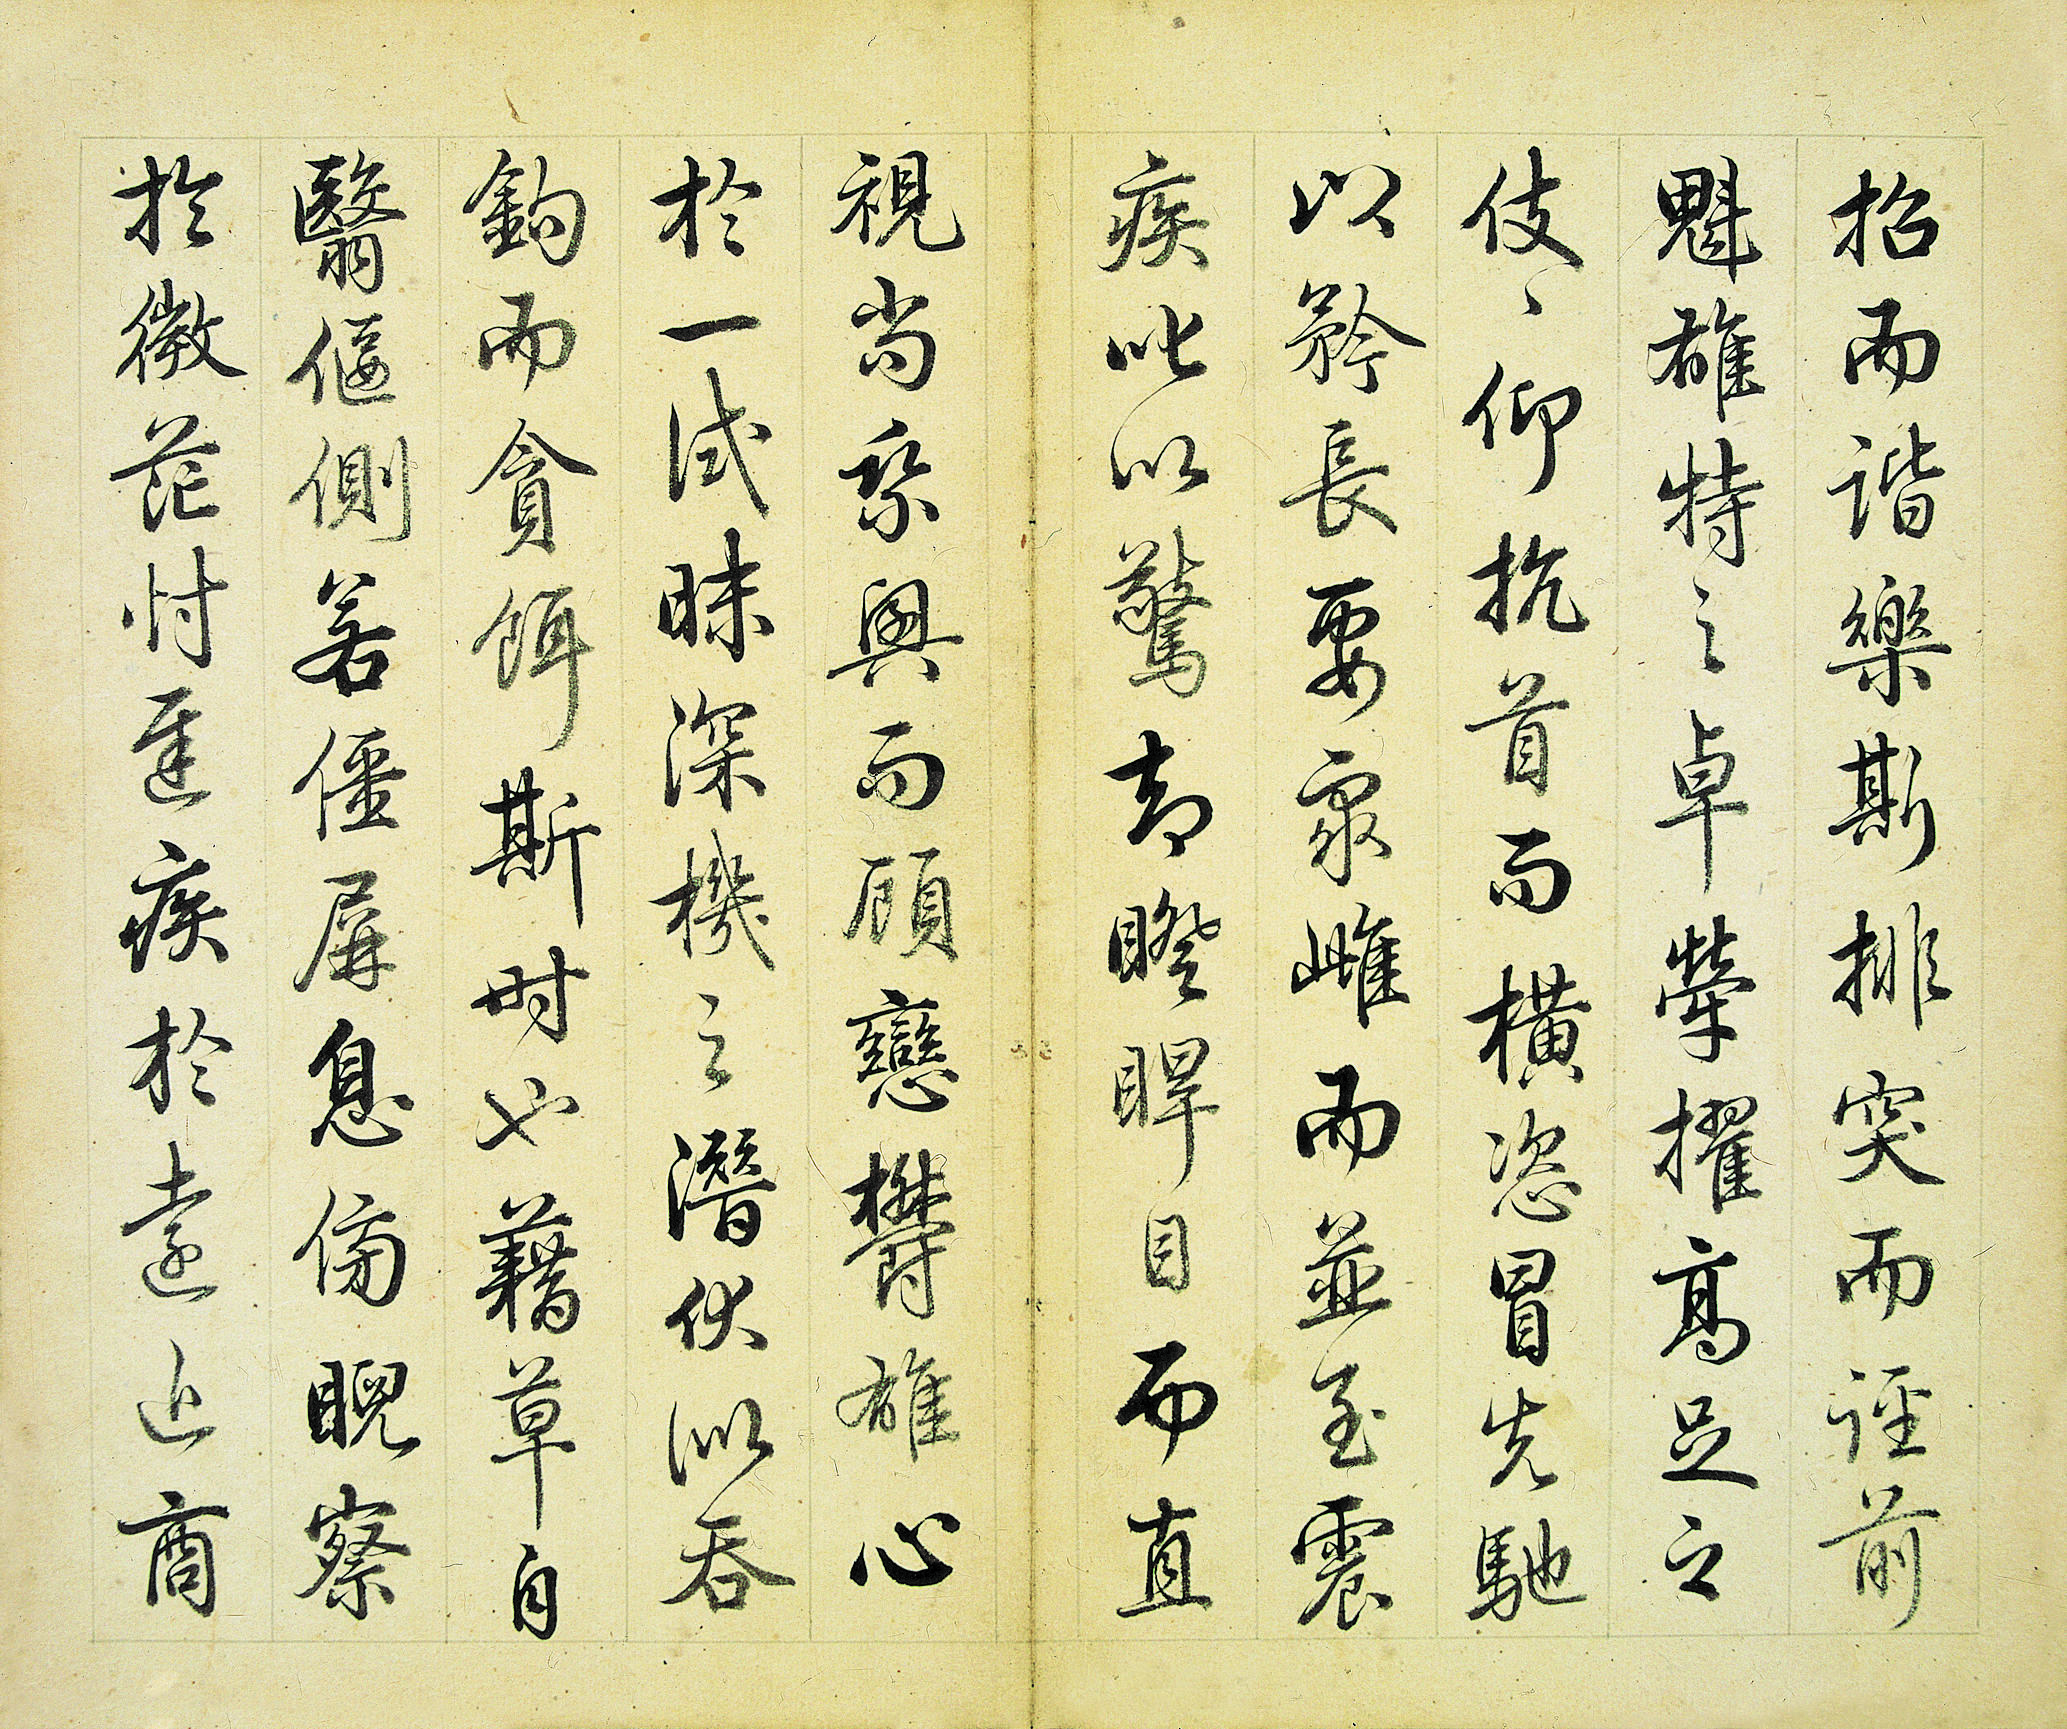 招而谐樂斯排突而誙前
魁雄特之卓犖擢高足之
伎〻仰抗首而橫恣冒先馳
以矜長要眾雌而並至震
疾呲以驚却睽睅目而直
視尚系輿而顧戀欝雄心
於一試昧深機之潛伏似吞
鉤而貪餌斯时也藉草自
翳偃側若僵屏息傍睨察
於微茫忖遲疾於遠近商